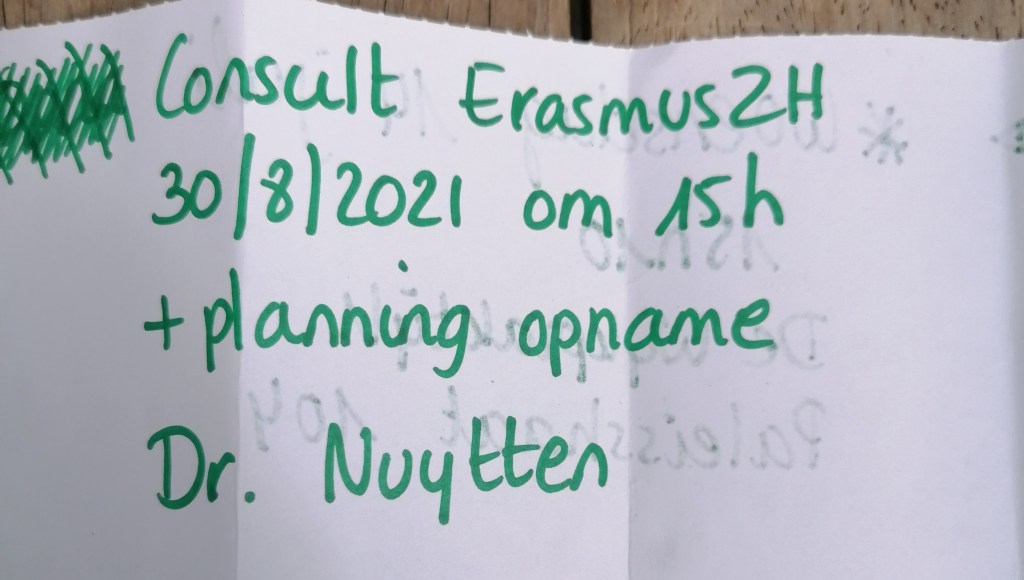 Consult Erasmus ZH
30/8/2021 om 15h
+ planning opname
Dr. Nuytten